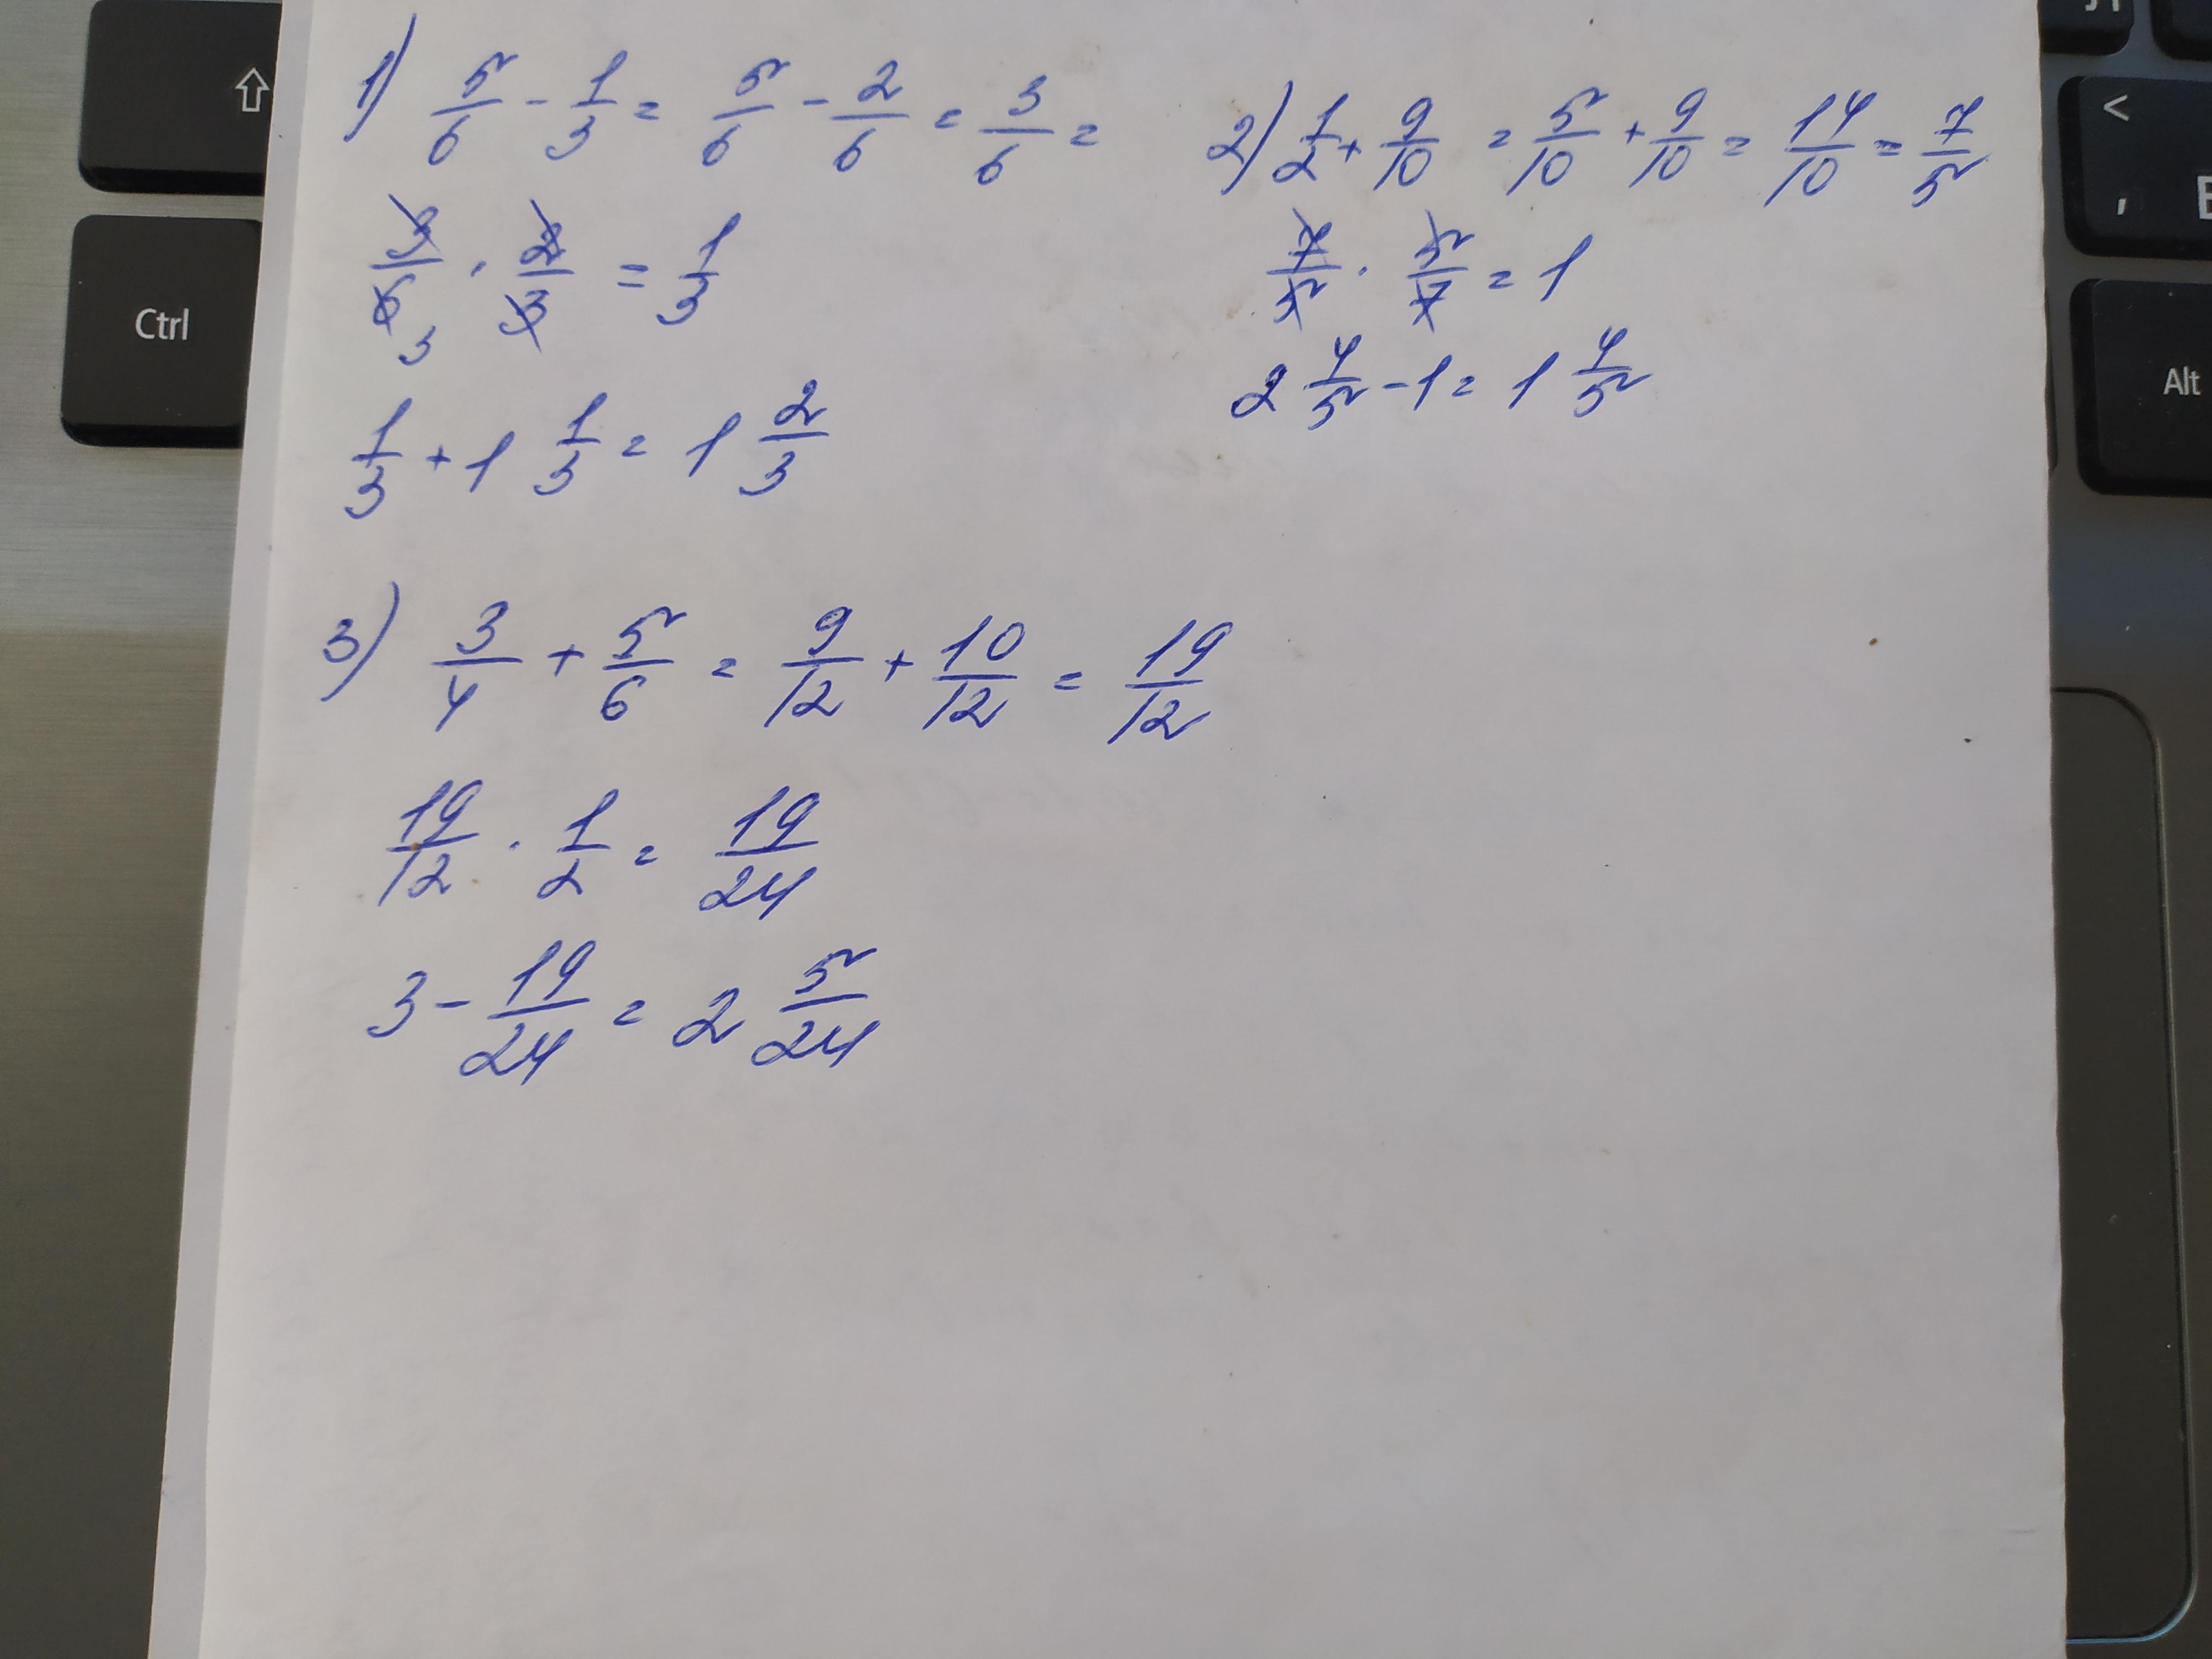 1) 5/6 - 1/3 = 5/6 - 2/6 = 3/6 =
3/6 · 2/3 = 1/3
3
1/3 + 1 1/3 = 1 2/3
2) 1/2 + 9/10 = 5/10 + 9/10 = 14/10 = 7/5
7/5 · 5/7 = 1
2 4/5 - 1 = 1 4/5
3) 3/4 + 5/6 = 9/12 + 10/12 = 19/12
19/12 · 1/2 = 19/24
3 - 19/24 = 2 5/24
⇧
Ctrl
<
,
Alt